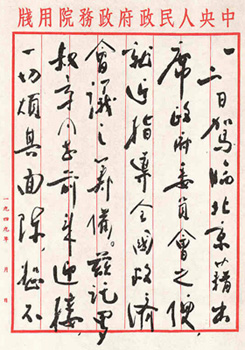 中央人民政府政務院用牋
一二日駕臨北京,藉出
席政府委員會之便,
就近指導全國經濟
會議之籌備。茲託羅
叔章同志前來迎接,
一切煩其面陳,恕不
一九四九年 月 日